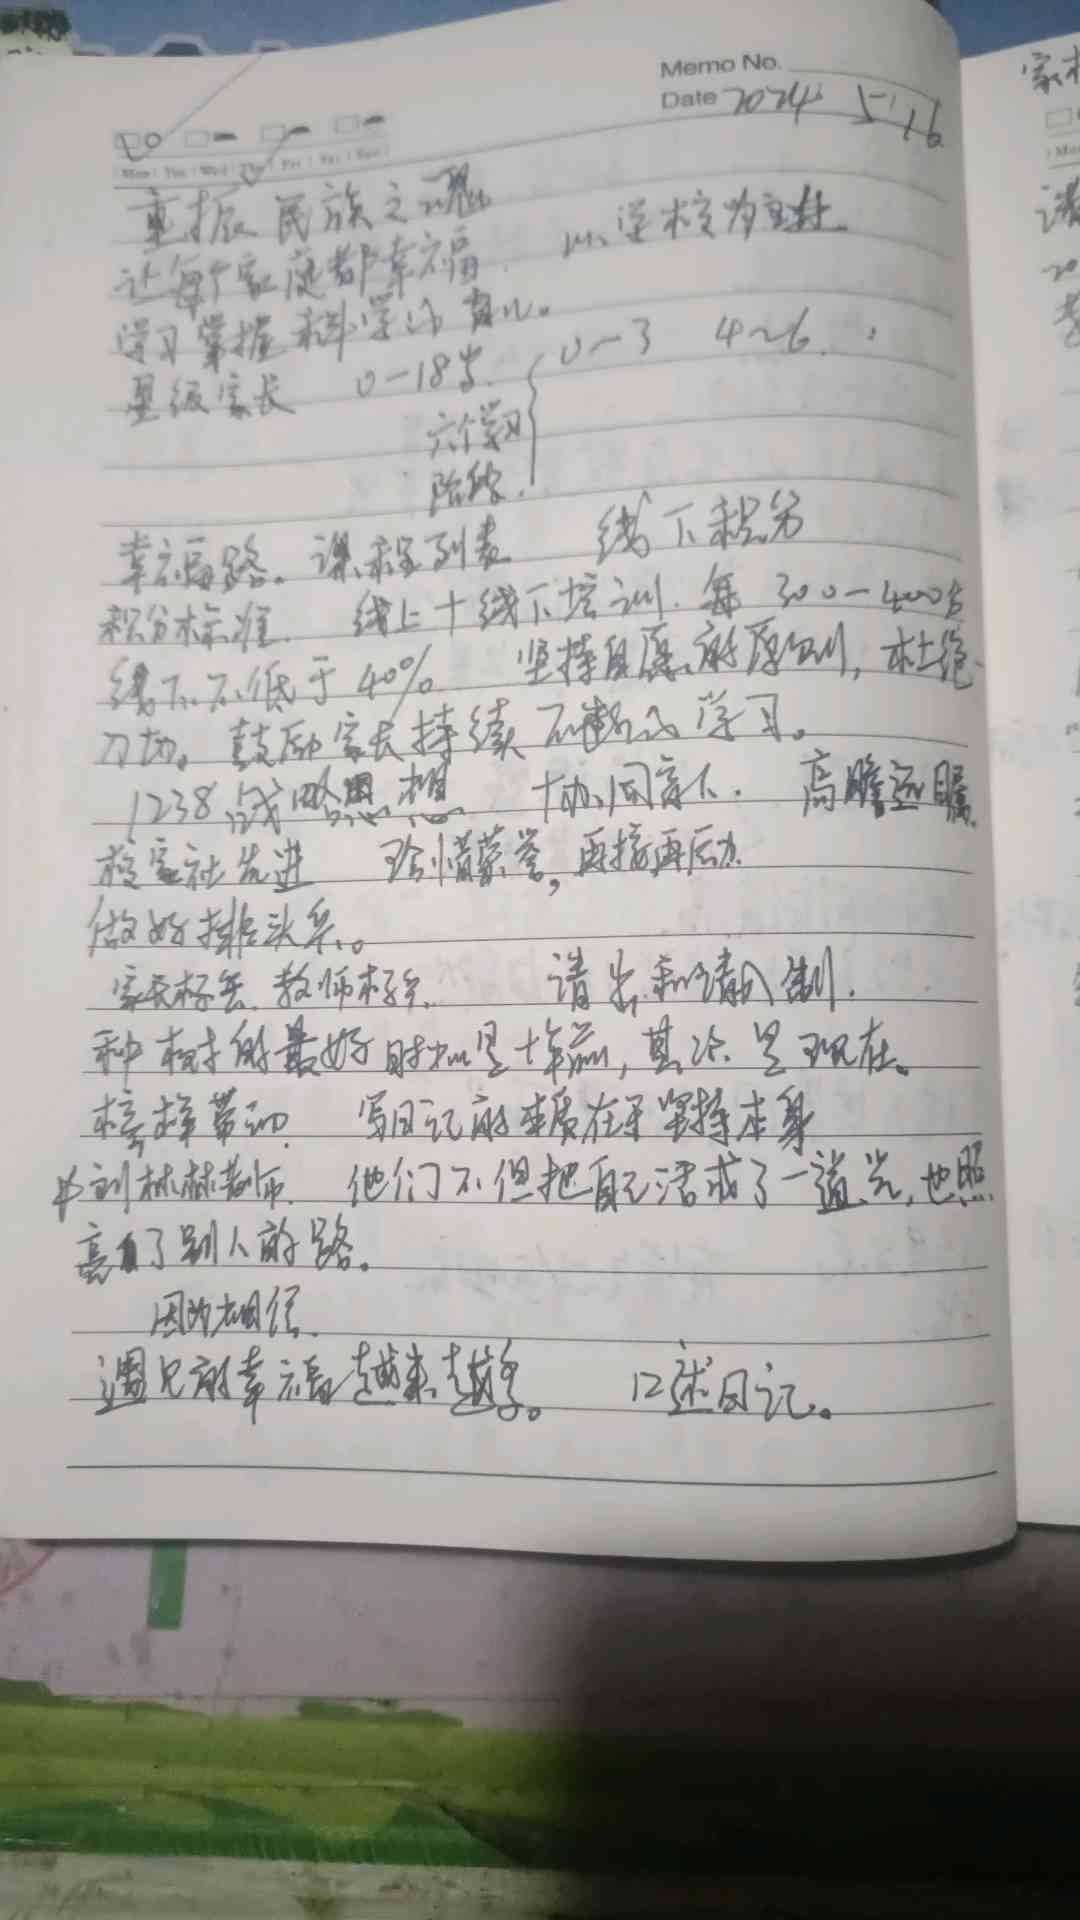 Memo No.
Date 2024 5 16
Mon Tue Wed Thu Fri Sat Sun
重振民族之魂
让每个家庭都幸福. 以学校为主
学习掌握科学的育儿。
星级家长 0-18岁. 0-3 4~6.
六个学习
阶段.
幸福路. 课程列表 线下积分
积分标准. 线上+线下培训. 每 300-400分
线下不低于40% 坚持自愿的原则, 杜绝
刀切。鼓励家长持续不断的学习。
1238战略思想 协同育人. 高瞻远瞩.
校家社先进 珍惜荣誉, 再接再厉.
做好排头兵。
家长标 教师标 请出和请入制.
种树的最好时 是十年前, 其次是现在。
榜样带动 写日记的本质在于坚持本身
刘林林老师. 他们不但把自己活成了一道光, 也照
亮了别人的路。
因为相信.
遇见的幸福越来越多。 口述日记。
家校